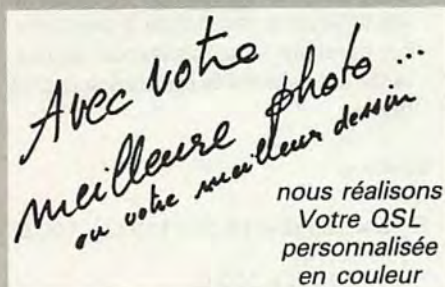 Avec votre
meilleure photo ...
ou votre meilleur dessin
nous réalisons
Votre QSL
personnalisée
en couleur